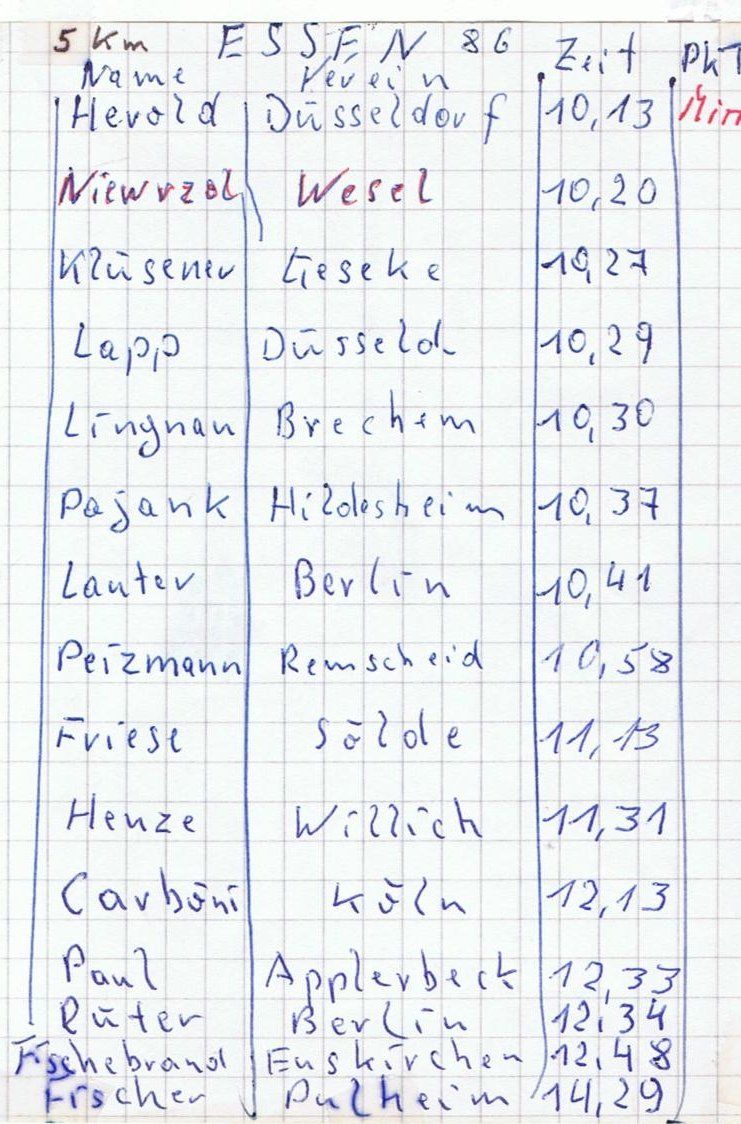 5 Km ESSEN 86 Zeit PkT
Name Verein
Herold Düsseldorf 10,13 Min
Niewrzol Wesel 10,20
Klüsener Geseke 10,27
Lapp Düsseld 10,29
Lingnau Brechem 10,30
Pajank Hildesheim 10,37
Lauter Berlin 10,41
Peizmann Remscheid 10,58
Friese Sölde 11,13
Henze Willich 11,31
Carboni Köln 12,13
Paul Applerbeck 12,33
Rüter Berlin 12,34
Fischebrand Euskirchen 12,48
Fischer Pulheim 14,29